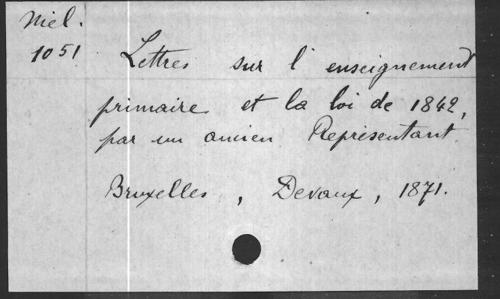 Niel.
1051
Lettres sur l'enseignement
primaire et la loi de 1842,
par un ancien Représentant.
Bruxelles, Devaux, 1871.